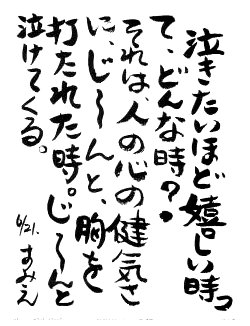 泣きたいほど嬉しい時っ
て、どんな時?
それは、人の心の健気さ
に、じ〜んと、胸を
打たれた時。じ〜んと
泣けてくる。
6/21. すみえ